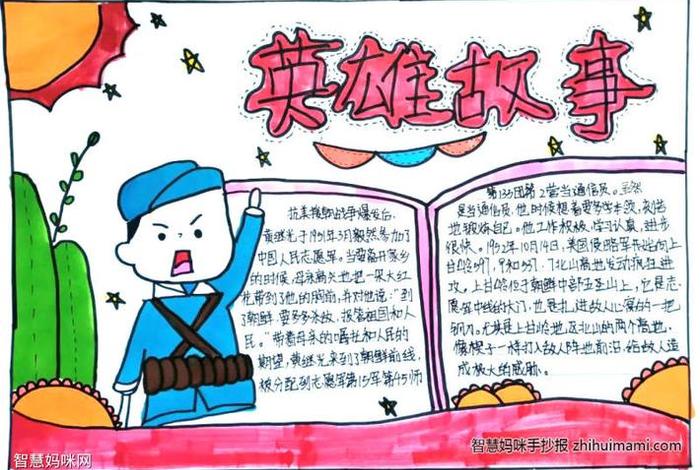 英雄故事
抗美援朝战争爆发后,
黄继光于1951年3月毅然参加了
中国人民志愿军。当黄离开家乡
的时候,母亲高兴地把一朵大红
花带到了他的胸前,并对他说:"到
了朝鲜,要多多杀敌,报答祖国和人
民。"带着母亲的嘱托和人民的
期望,黄继光来到了朝鲜前线,
被分配到志愿军第15军第45师
第135团第2营当通信员。虽然
是当通信员,他时候想着要多学本领,刻苦
地锻炼自己。他工作积极,学习认真,进步
很快。1952年10月14日,美国侵略军开始向上
甘岭597,9和537,7北山高地发动疯狂进
攻。上甘岭位于朝鲜中部五圣山上,它是志
愿军中线的大门,也是扎进敌人心窝的一把
钢刀。尤其是上甘岭地及北山的两个高地,
像楔子一样打入敌人阵地前沿,给敌人造
成极大的威胁。
智慧妈咪网
智慧妈咪手抄报 zhihuimami.com